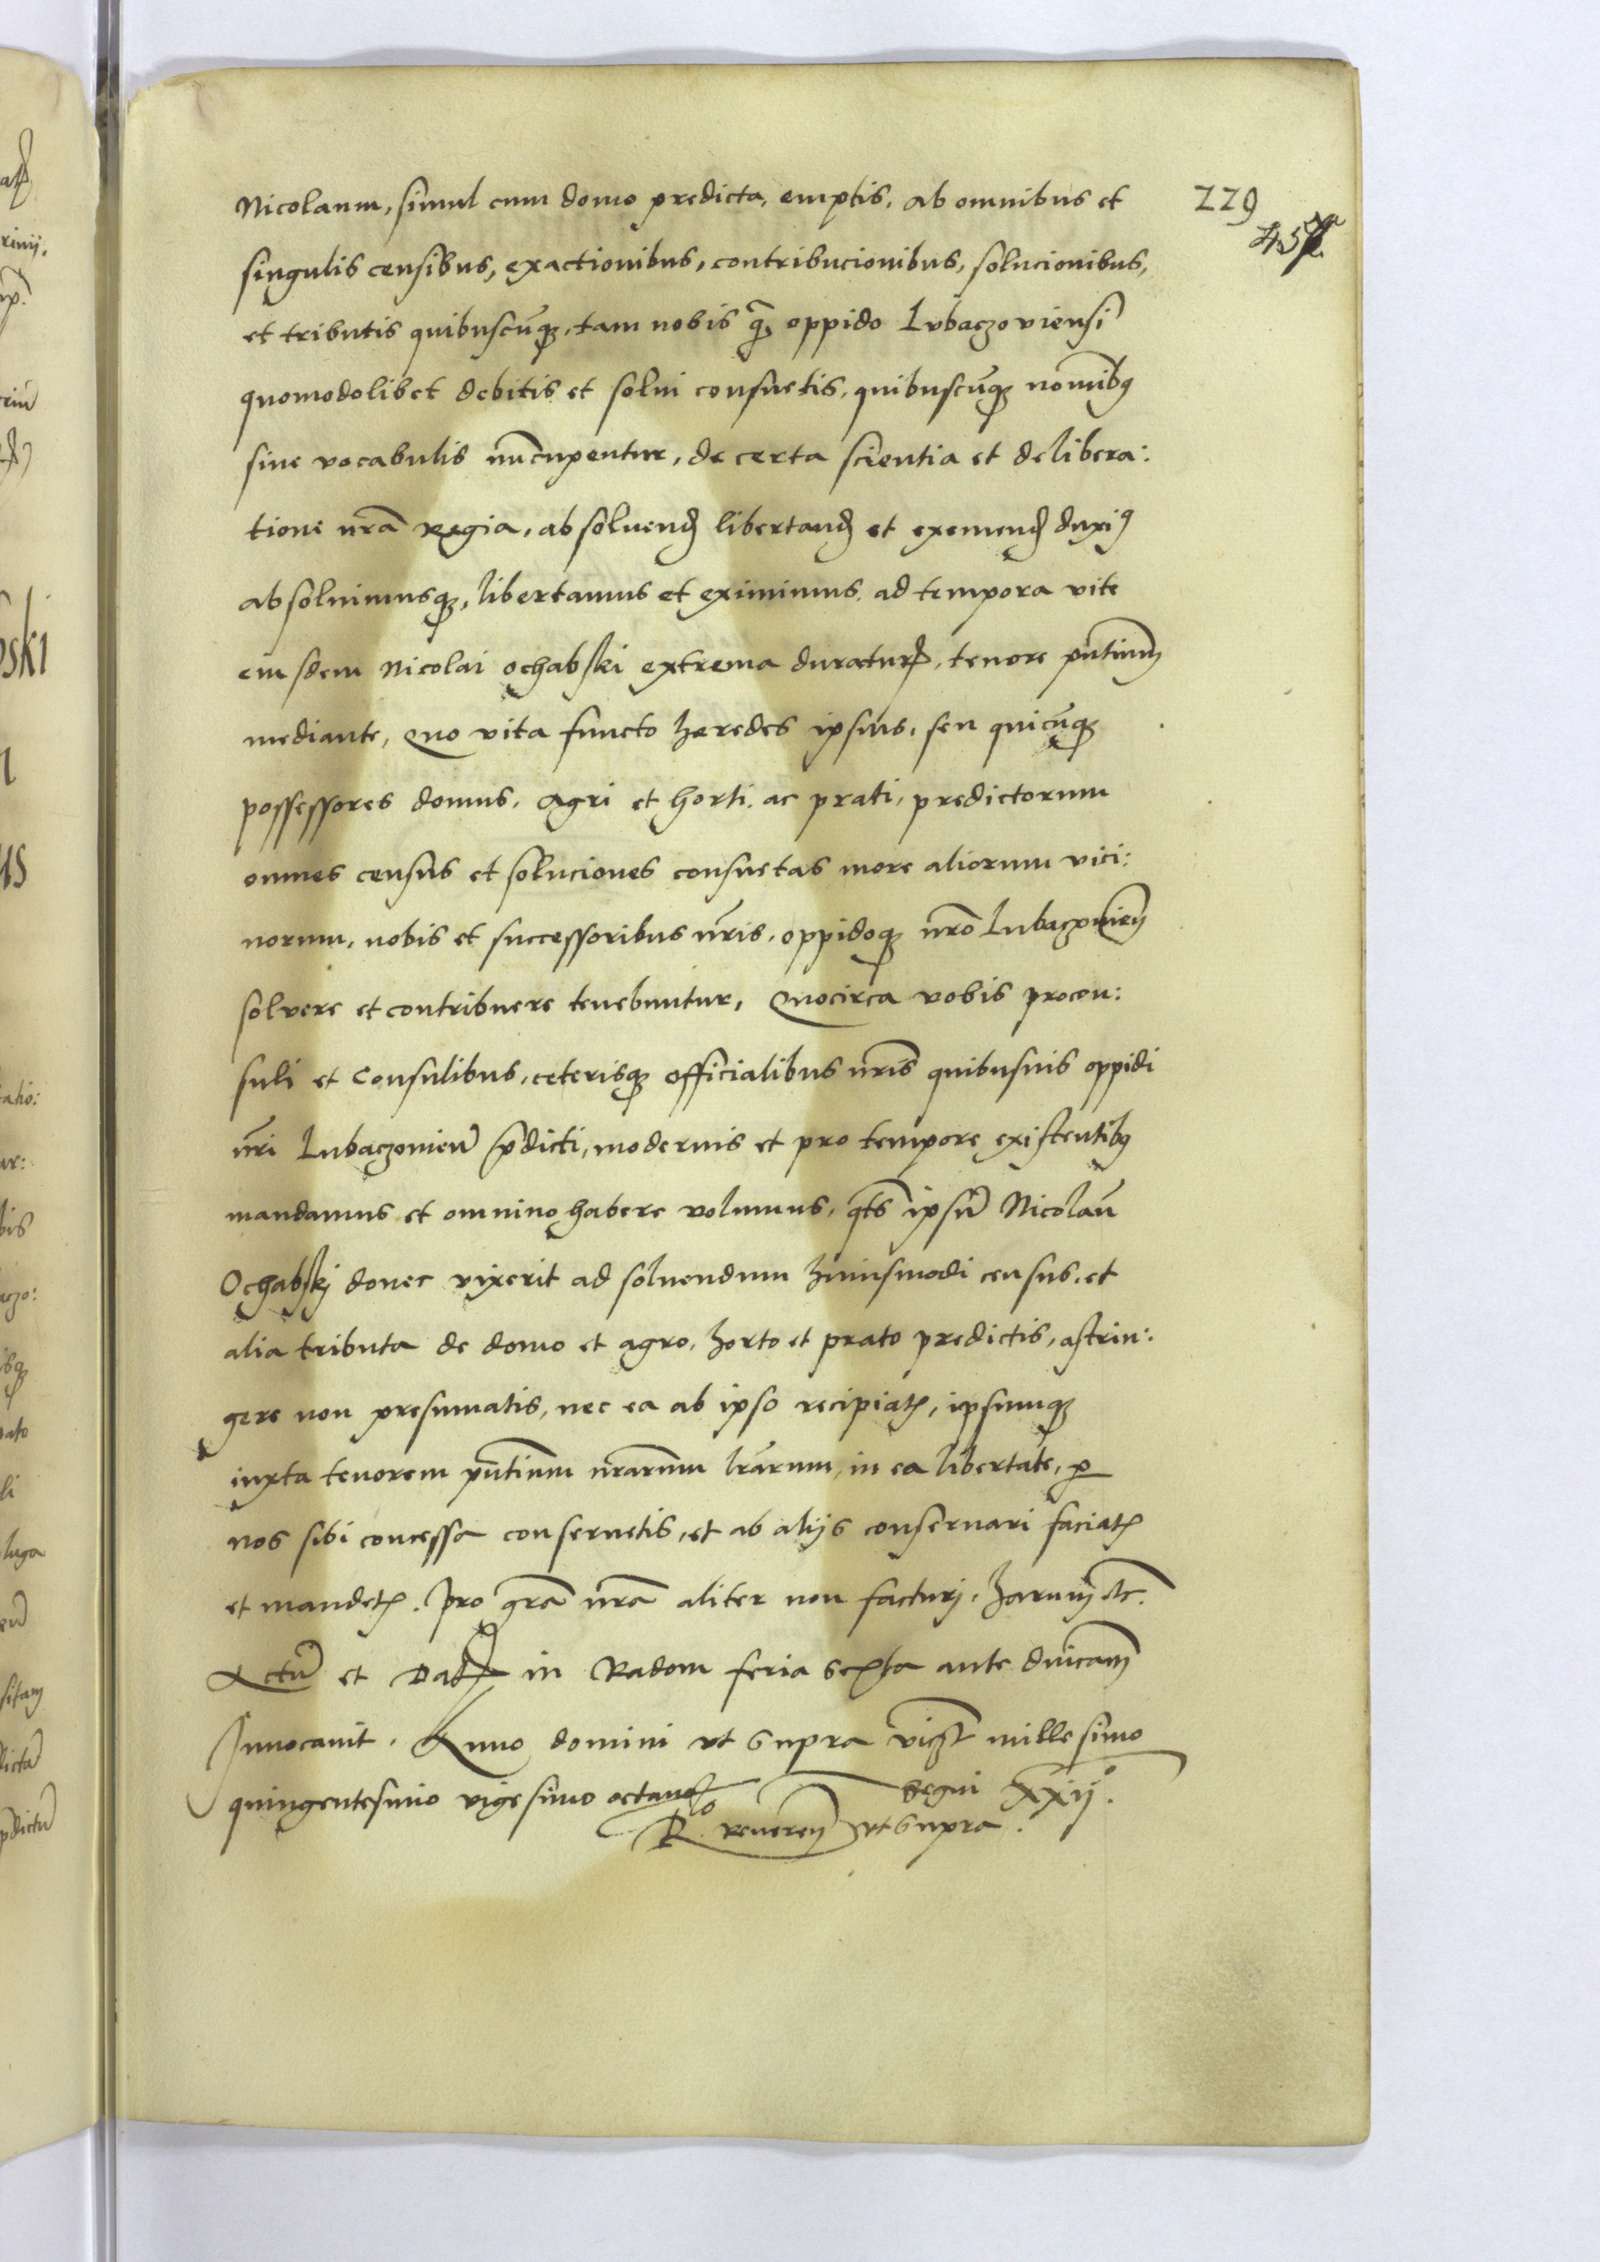 Nicolaum, simul cum domo predicta, emptis, ab omnibus et
229
singulis censibus, exactionibus, contribucionibus, solucionibus,
et tributis quibuscūqȝ, tam nobis q̄ȝ oppido Lvbaczoviensi
quomodolibet debitis et solui consuetis, quibuscūqȝ nomībꝰ
siue vocabulis nūcupentur, de certa scientia et delibera:
tione nr̄a Regia, absoluend̄ libertand̄ et exemend̄ duxiꝰ
absoluimusqȝ, libertamus et eximimus, ad tempora vite
eiusdem Nicolai Ochabski extrema duraturꝝ, tenore pn̄tium
mediante, Quo vita functo heredes ipsius, seu quicūqȝ
possessores domus, Agri et horti, ac prati, predictorum
omnes census et soluciones consuetas more aliorum vici:
norum, nobis et successoribus nr̄is, oppidoqȝ nr̄o Lubaczouien̄
solvere et contribuere tenebuntur, Quocirca vobis procon:
suli et Consulibus, ceterisqȝ officialibus nr̄is quibusuis oppidi
nr̄i Lubaczouien̄ p̄dicti, modernis et pro tempore existentibꝰ
mandamus et omnino habere volumus, qt̄s ipsū Nicolaū
Ochabskj donec vixerit ad soluendum huiusmodi census, et
alia tributa de domo et agro, horto et prato predictis, astrin:
gere non presumatis, nec ea ab ipso recipiatꝭ, ipsumqȝ
iuxta tenorem pn̄tium nr̄arum lr̄arum, in ea libertate, ꝑ
nos sibi concessa conseruetis, et ab alijs conseruari faciatꝭ
et mandetꝭ. Pro gr̄a nr̄a aliter non facturj. harum etc.
Actū et Datꝭ in Radom feria sexta ante dn̄icam
Inuocauit. Anno domini vt supra vicꝫt millesimo
quingentesimo vigesimo octauo Regni xxijº.
Rlo reueren̄ vt supra.